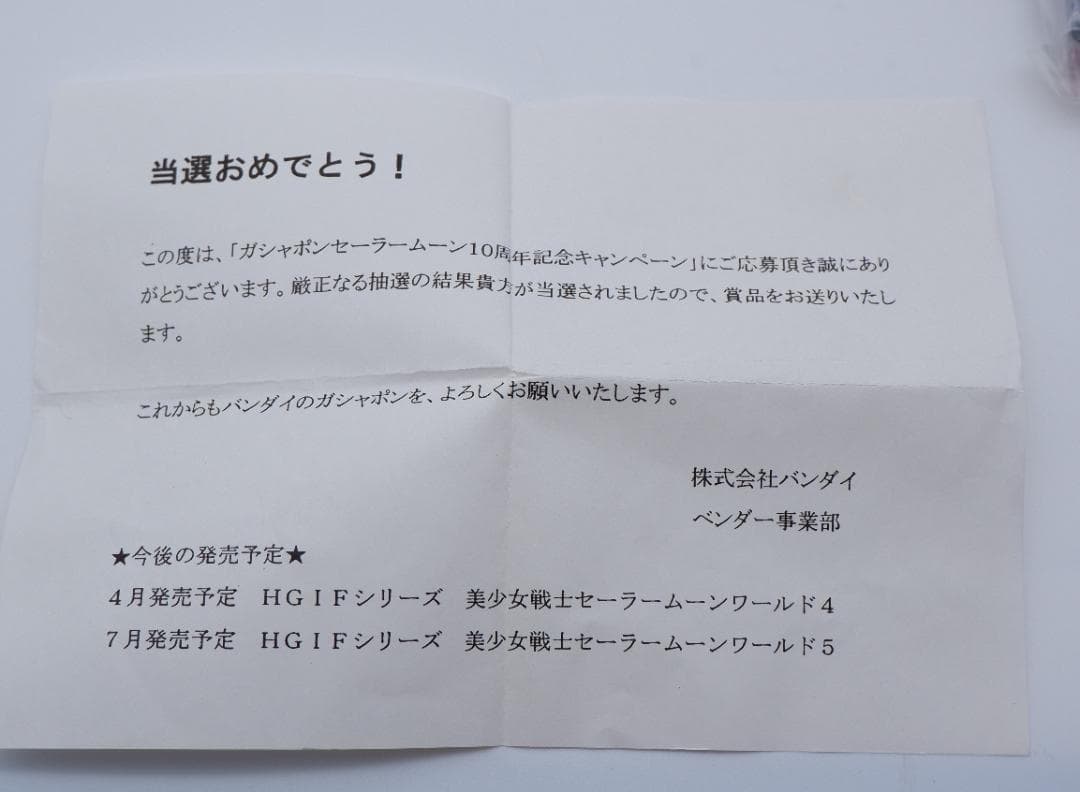 当選おめでとう！
この度は、「ガシャポンセーラームーン10周年記念キャンペーン」にご応募頂き誠にあり
がとうございます。厳正なる抽選の結果貴方が当選されましたので、賞品をお送りいたし
ます。
これからもバンダイのガシャポンを、よろしくお願いいたします。
株式会社バンダイ
ベンダー事業部
★今後の発売予定★
４月発売予定　ＨＧＩＦシリーズ　美少女戦士セーラームーンワールド４
７月発売予定　ＨＧＩＦシリーズ　美少女戦士セーラームーンワールド５